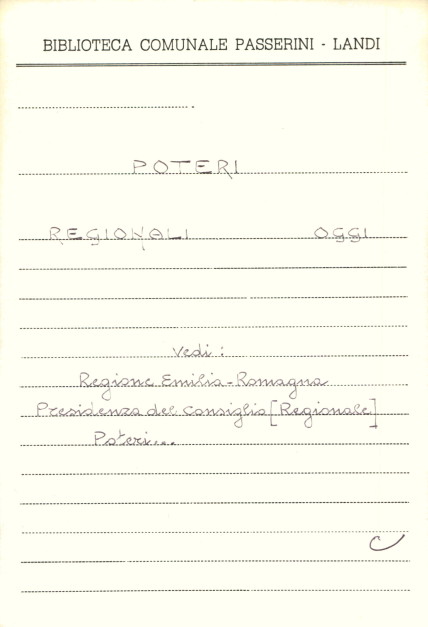 BIBLIOTECA COMUNALE PASSERINI - LANDI
POTERI
REGIONALI OGGI
vedi :
Regione Emilia-Romagna
Presidenza del Consiglio [Regionale]
Poteri...
C